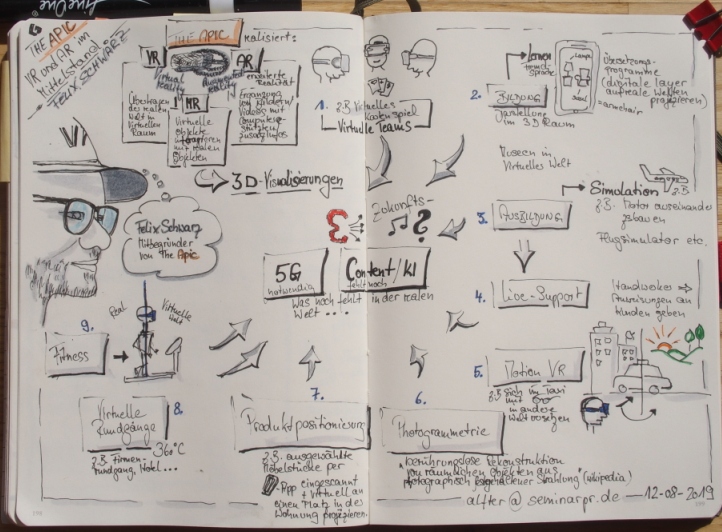 THE APIC
VR und AR im
Mittelstand
FELIX SCHWARZ
THE APIC realisiert:
VR
Virtual
Reality
Übertragen
des realen
Welt in
virtuellen
Raum
AR
Augmented
Reality
erweiterte
Realität
Ergänzung
von Bildern/
Videos mit
Computer-
Zusatzinfos
MR
Virtuelle
Objekte
mit realen
Objekten
3D-Visualisierungen
Felix Schwarz
Mitbegründer
von The Apic
1. z.B. Virtuelles
Kartenspiel
Virtuelle Teams
2. BILDUNG
Darstellung
im 3D Raum
Lernen
Lampe
Übersetzungs-
programme
(digitale Layer
auf reale Welten
projizieren)
Museen in
Virtuelles Welt
Zukunfts-
?
3. AUSBILDUNG
Simulation
z.B.
z.B. Motor auseinander
bauen
Flugsimulator etc.
5G
notwendig
Content/KI
fehlt noch
Was noch fehlt in der realen
Welt ....
4. Live-Support
Handwerker
Anweisungen an
Kunden geben
5. Motion VR
z.B. Sich im Taxi
mit
in andere
Welt
6.
Photogrammetrie
"berührungslose Rekonstruktion
von räumlichen Objekten aus
photographisch festgehaltener Strahlung" (Wikipedia)
7.
Produktpositionierung
z.B. ausgewählte
Möbelstücke per
App eingescannt
+ virtuell an
einen Platz in des
Wohnung projizieren.
8.
Virtuelle
Rundgänge
360°C
z.B. Firmen-
rundgang, Hotel...
9.
Fitness
Real
Virtuelle
Welt
alfter@seminarpr.de — 12-08-2019